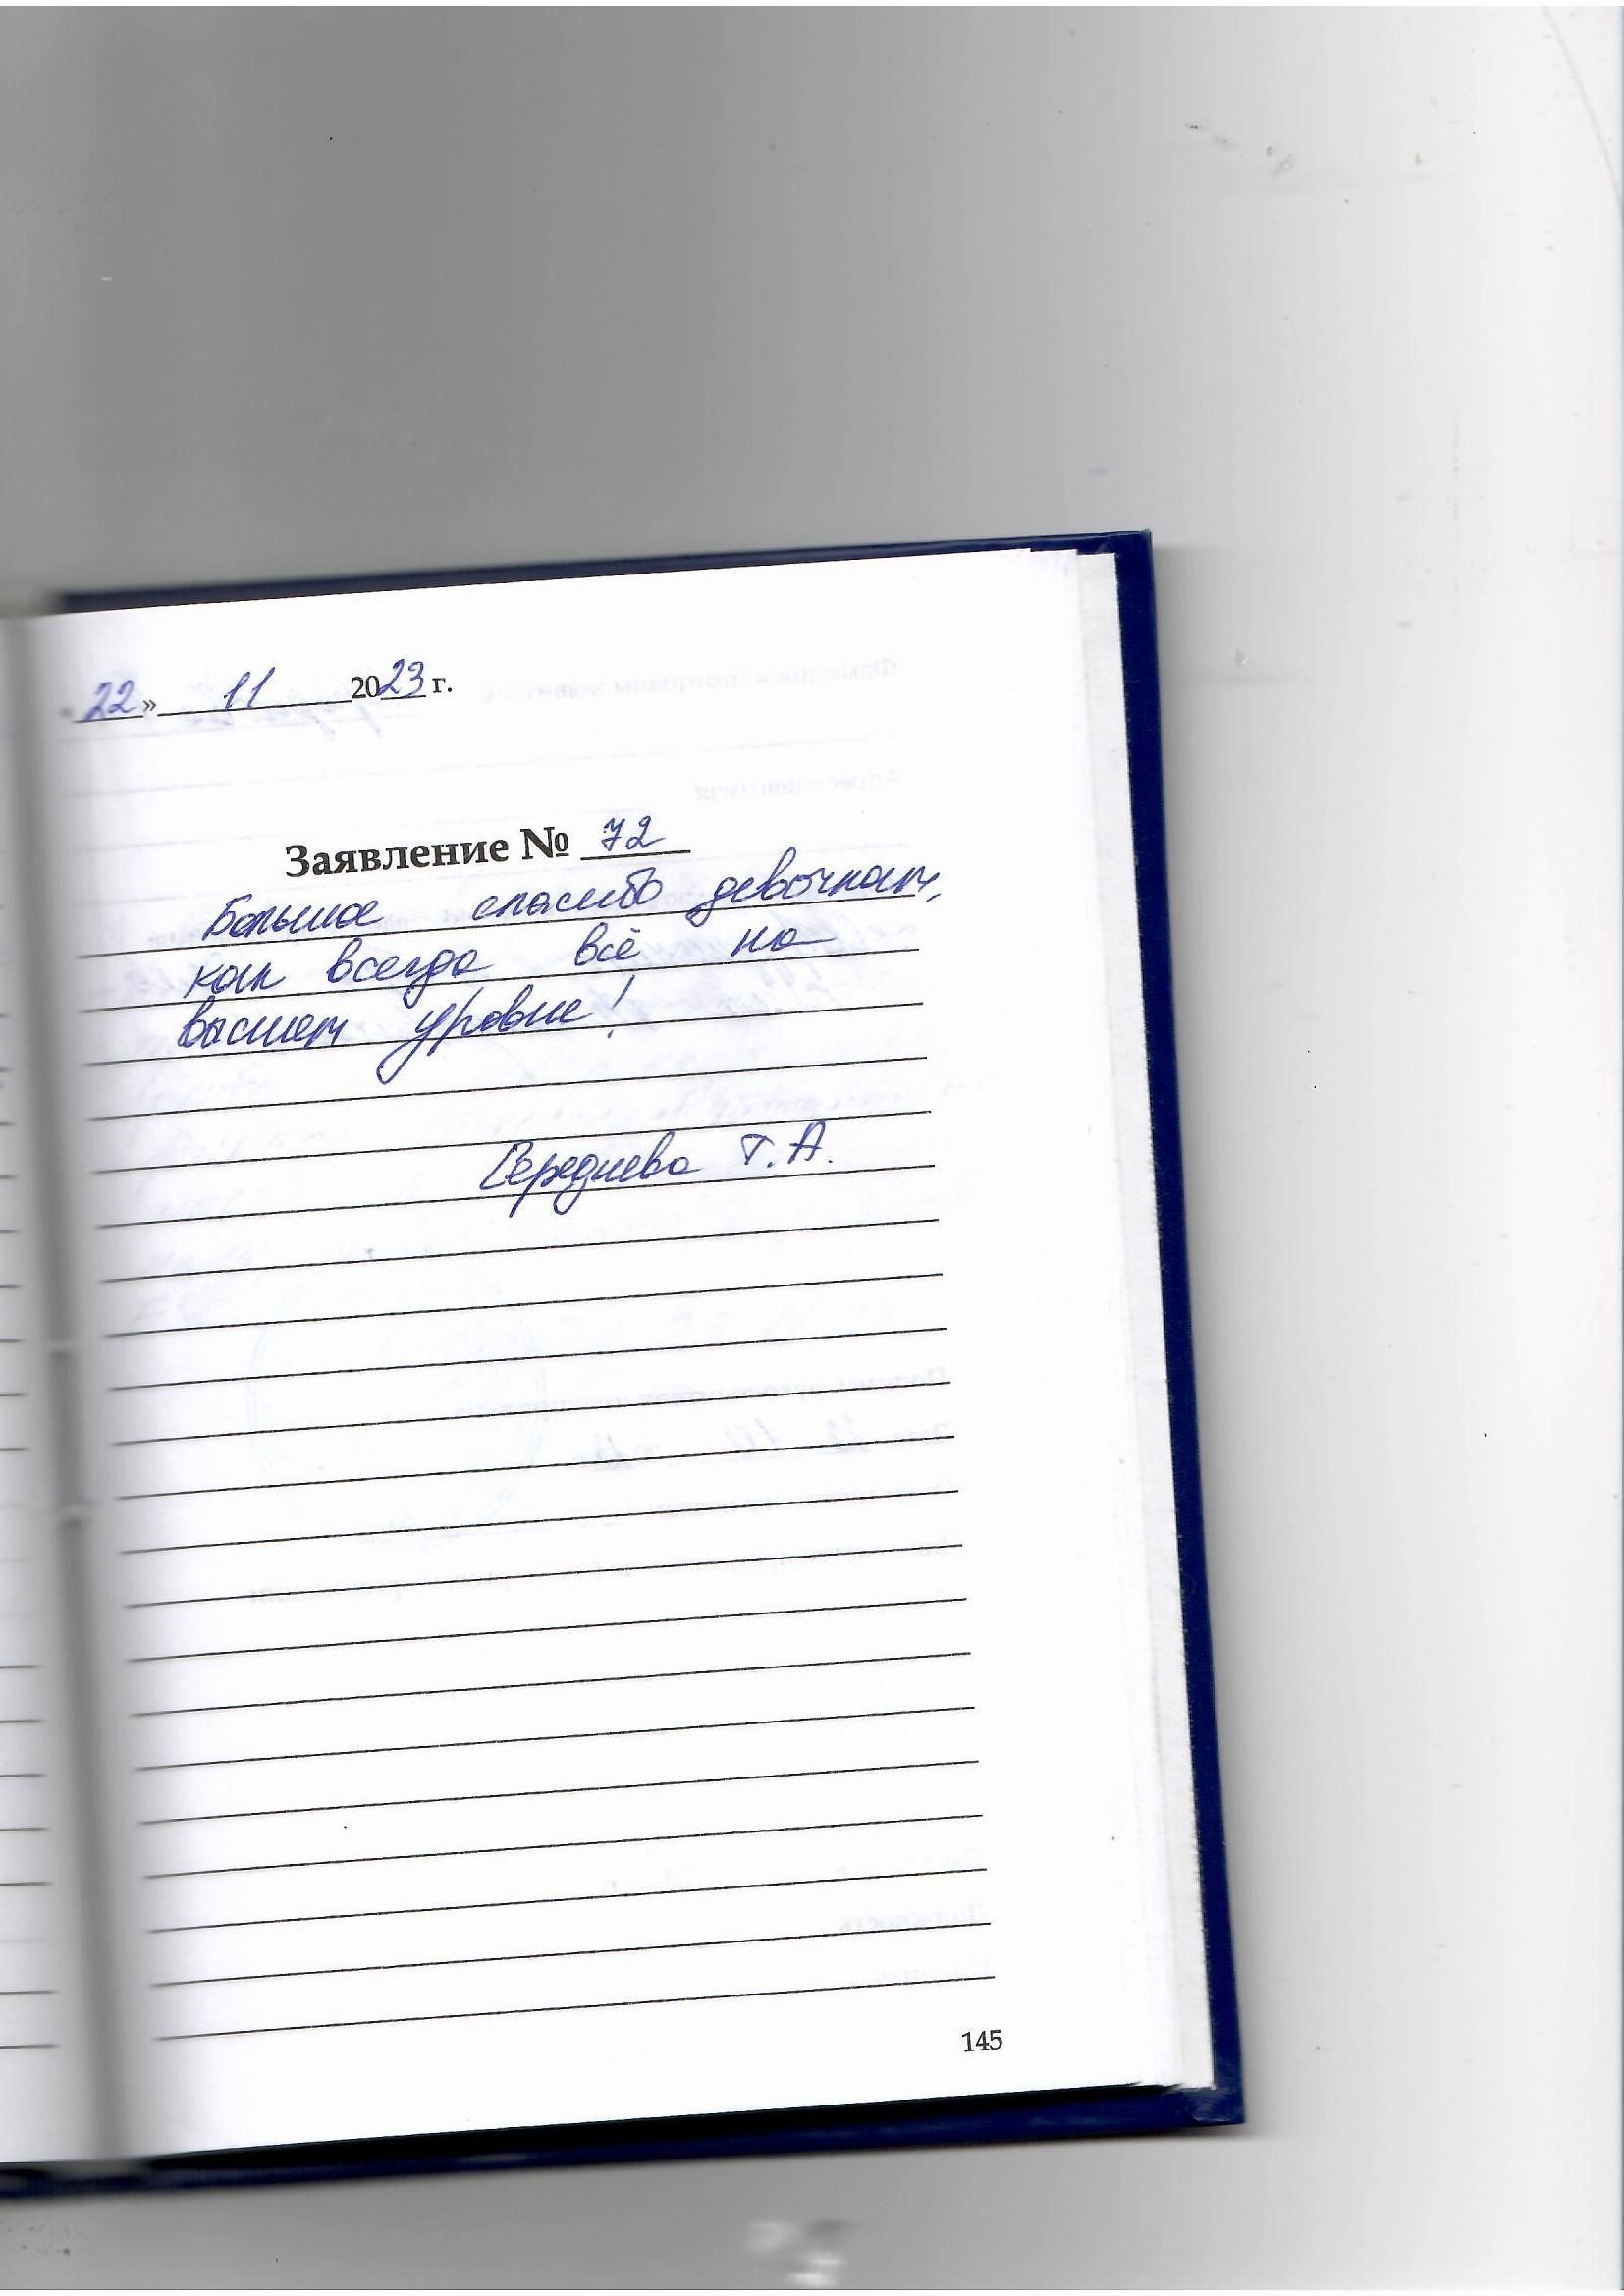 «22» 11 2023 г.
Заявление № 72
Большое спасибо девочкам,
как всегда всё на
высшем уровне!
Середнева Т.А.
145